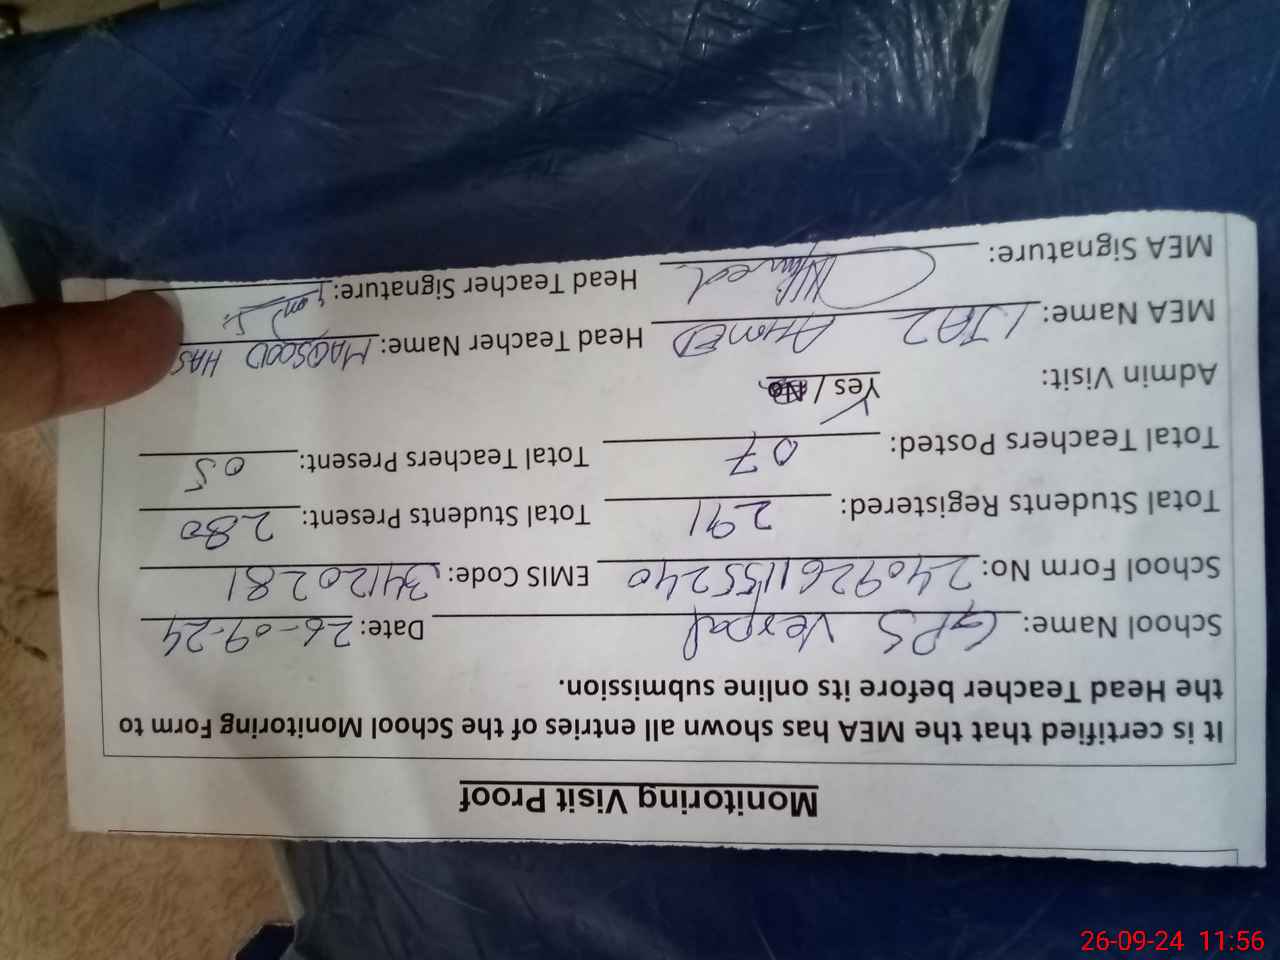 Monitoring Visit Proof
It is certified that the MEA has shown all entries of the School Monitoring Form to
the Head Teacher before its online submission.
School Name: GPS Verpal Date: 26-09-24
School Form No: 2409261155240 EMIS Code: 34120281
Total Students Registered: 291 Total Students Present: 280
Total Teachers Posted: 07 Total Teachers Present: 05
Admin Visit: Yes / No
MEA Name: IJAZ AHMED Head Teacher Name: MAQSOOD HAS
MEA Signature: Head Teacher Signature:
26-09-24 11:56